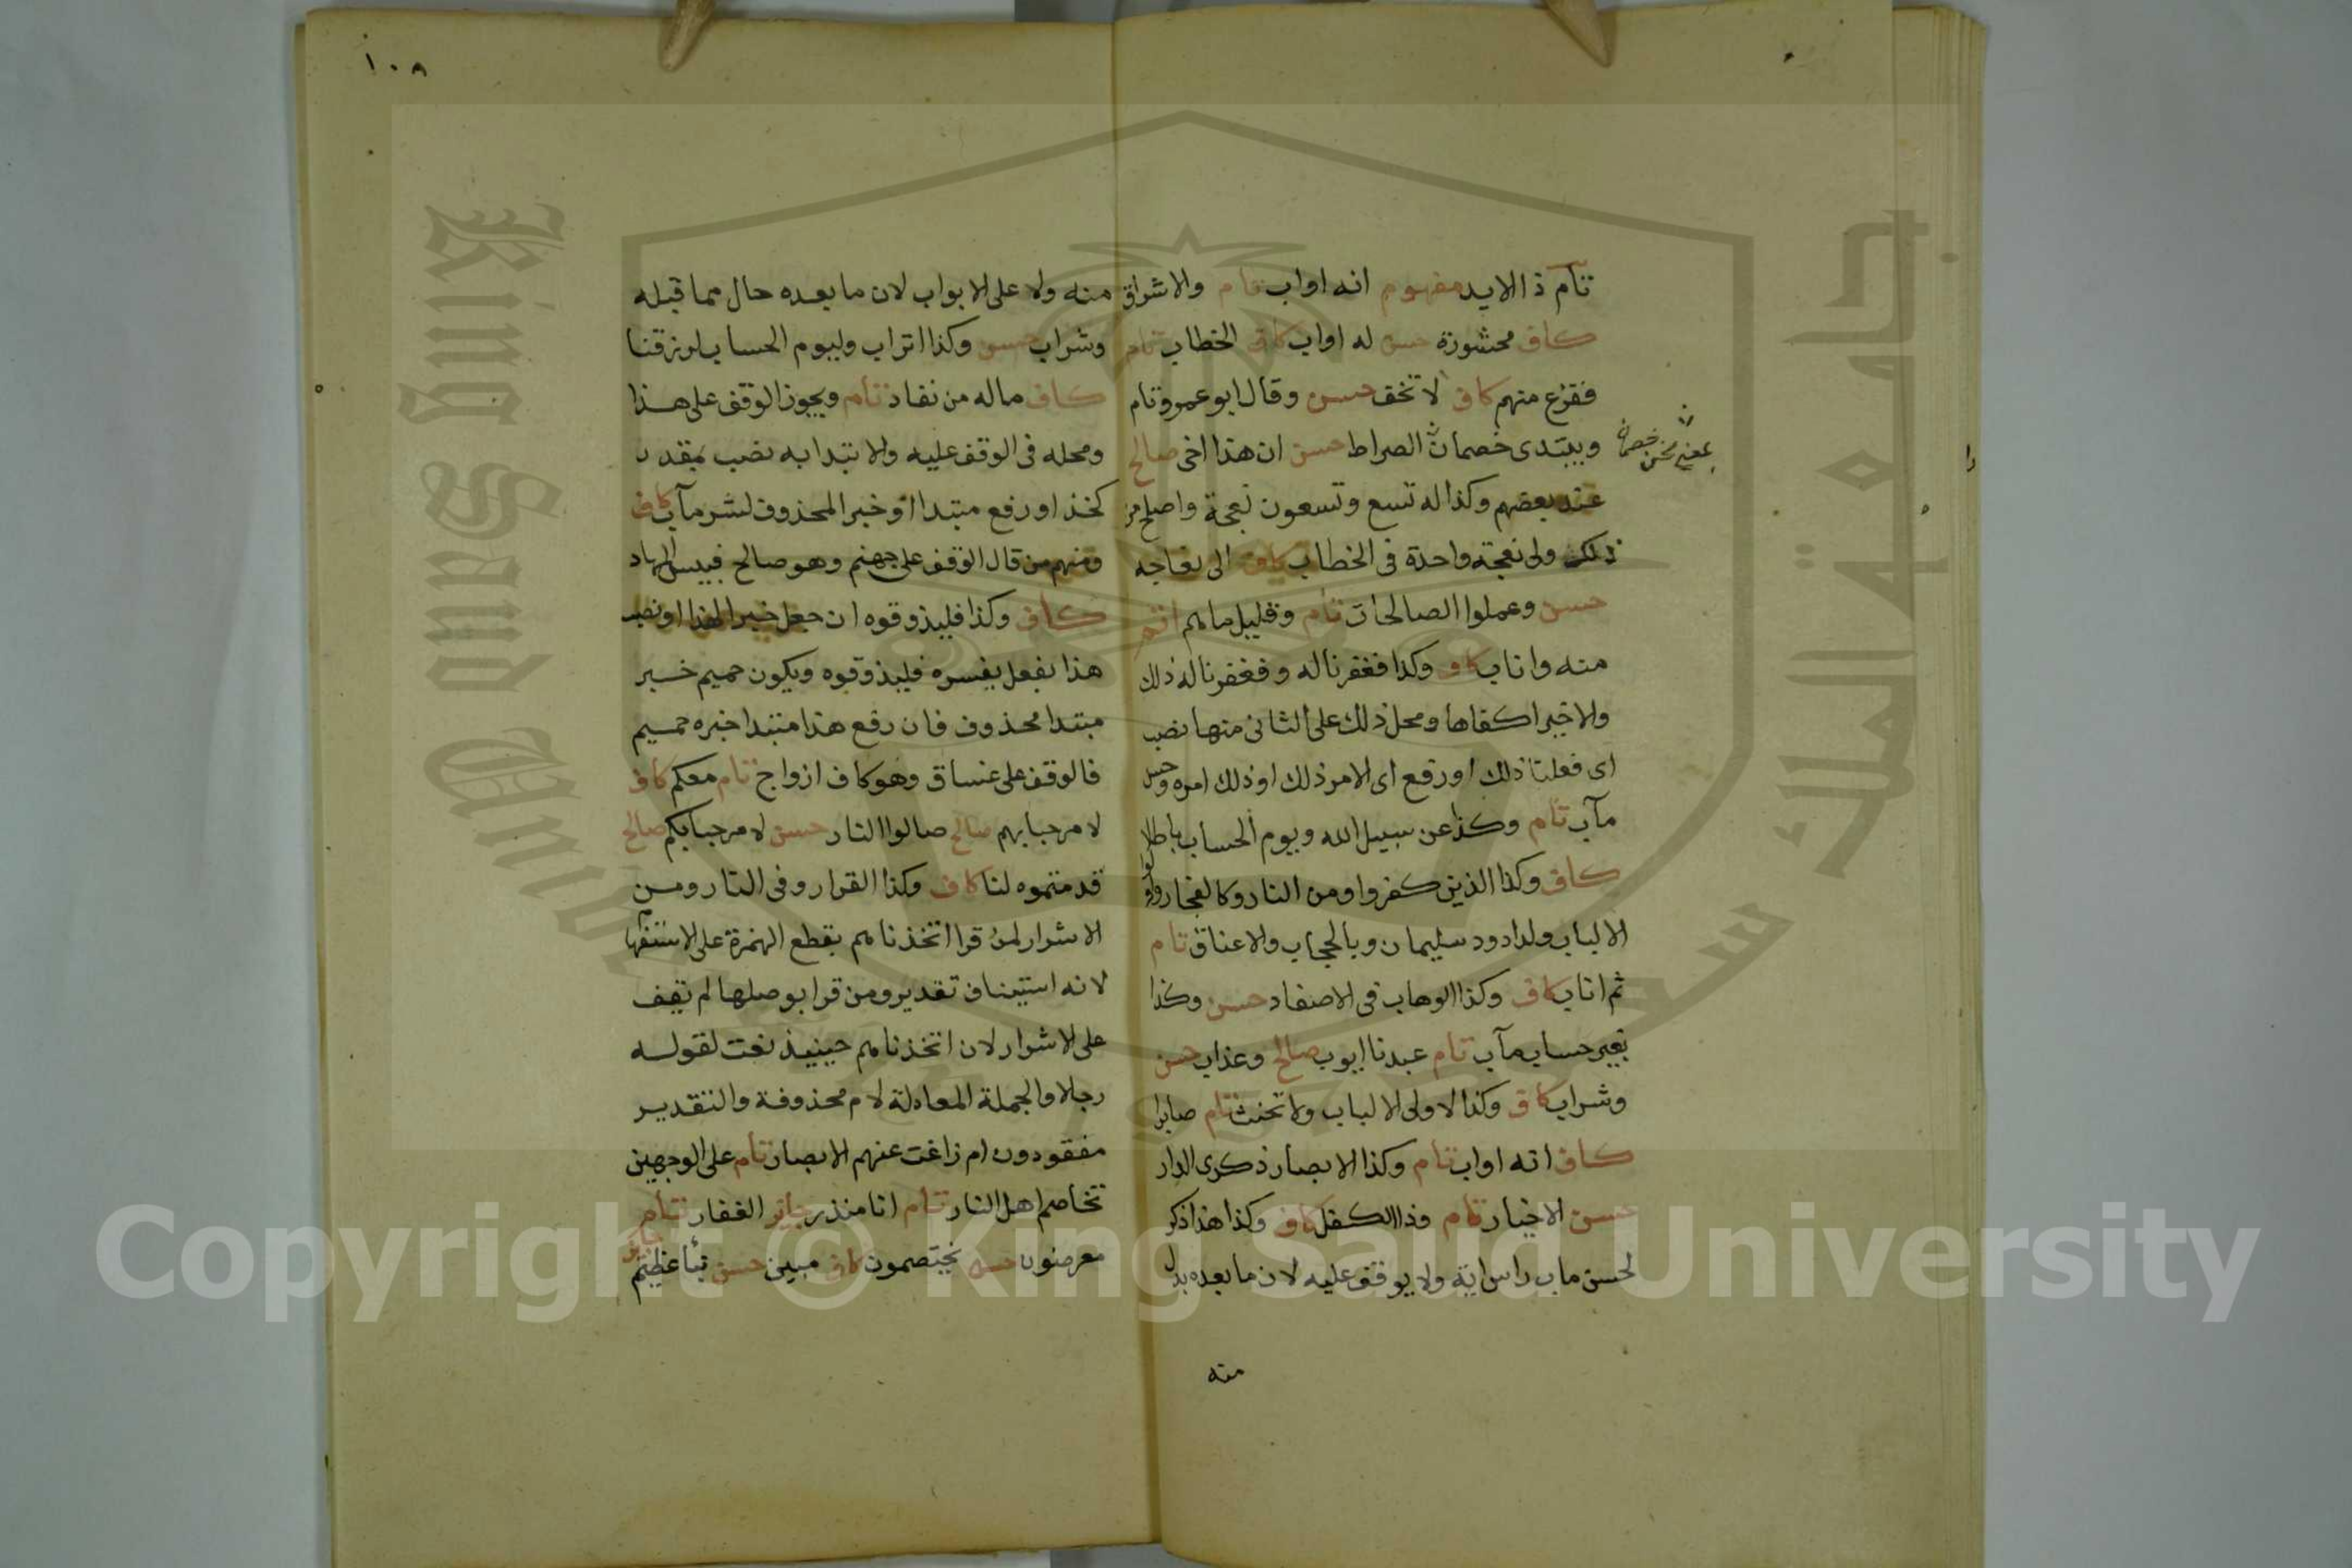 ١٠٨
تام ذا الايد مفهوم انه اواب تام والاشراق
كاف محشورة حسن له اواب كاف الخطاب تام
ففزع منهم كاف لا تخف حسن وقال ابو عمرو تام
ويبتدى خصمان الصراط حسن ان هذا اخى صالح
بمعنى نحن خصمان
عند بعضهم وكذا له تسع وتسعون نعجة واصلح من
ذلك ولى نعجة واحدة فى الخطاب كاف الى نعاجه
حسن وعملوا الصالحات تام وقليل ما هم اتم
منه واناب كاف وكذا فغفرنا له وفغفرنا له ذلك
والاخير اكفاها ومحل ذلك على الثانى منها نصب
اى فعلنا ذلك او رفع اى الامر ذلك او ذلك امره وحسن
مآب تام وكذا عن سبيل الله ويوم الحساب باطلا
كاف وكذا الذين كفروا ومن النار وكالفجار واولوا
الالباب ولداود سليمان وبالحجاب والاعناق تام
ثم اناب كاف وكذا الوهاب فى الاصفاد حسن وكذا
بغير حساب مآب تام عبدنا ايوب صالح وعذاب حسن
وشراب كاف وكذا لاولى الالباب ولا تحنث تام صابرا
كاف انه اواب تام وكذا الابصار ذكرى الدار
حسن الاخيار تام وذا الكفل كاف وكذا هذا ذكر
لحسن ماب راس اية ولا يوقف عليه لان ما بعده بدل
منه
منه ولا على الابواب لان ما بعده حال مما قبله
وشراب حسن وكذا اتراب وليوم الحساب لرزقنا
كاف ماله من نفاد تام ويجوز الوقف على هذا
ومحله فى الوقف عليه والابتدا به نصب بمقدر
كخذ او رفع مبتدا او خبر المحذوف لشر مآب كاف
ومنهم من قال الوقف على جهنم وهو صالح فبيس المهاد
كاف وكذا فليذوقوه ان جعل خبرا لهذا او نصب
هذا بفعل يفسره فليذوقوه ويكون حميم خبر
مبتدا محذوف فان رفع هذا مبتدا خبره حميم
فالوقف على غساق وهو كاف ازواج تام معكم كاف
لا مرحبا بهم صالح صالوا النار حسن لا مرحبا بكم صالح
قدمتموه لنا كاف وكذا القرار وفى النار ومن
الاشرار لمن قرا اتخذناهم بقطع الهمزة على الاستفهام
لانه استيناف تقدير ومن قرا بوصلها لم يقف
على الاشرار لان اتخذناهم حينيذ نعت لقوله
رجالا والجملة المعادلة لام محذوفة والتقدير
مفقودون ام زاغت عنهم الابصار تام على الوجهين
تخاصم اهل النار تام انا منذر جائز الغفار تام
معرضون حسن يختصمون كاف مبين حسن نبأ عظيم جائز
Copyright © King Saud University
King Saud University
جامعة الملك سعود